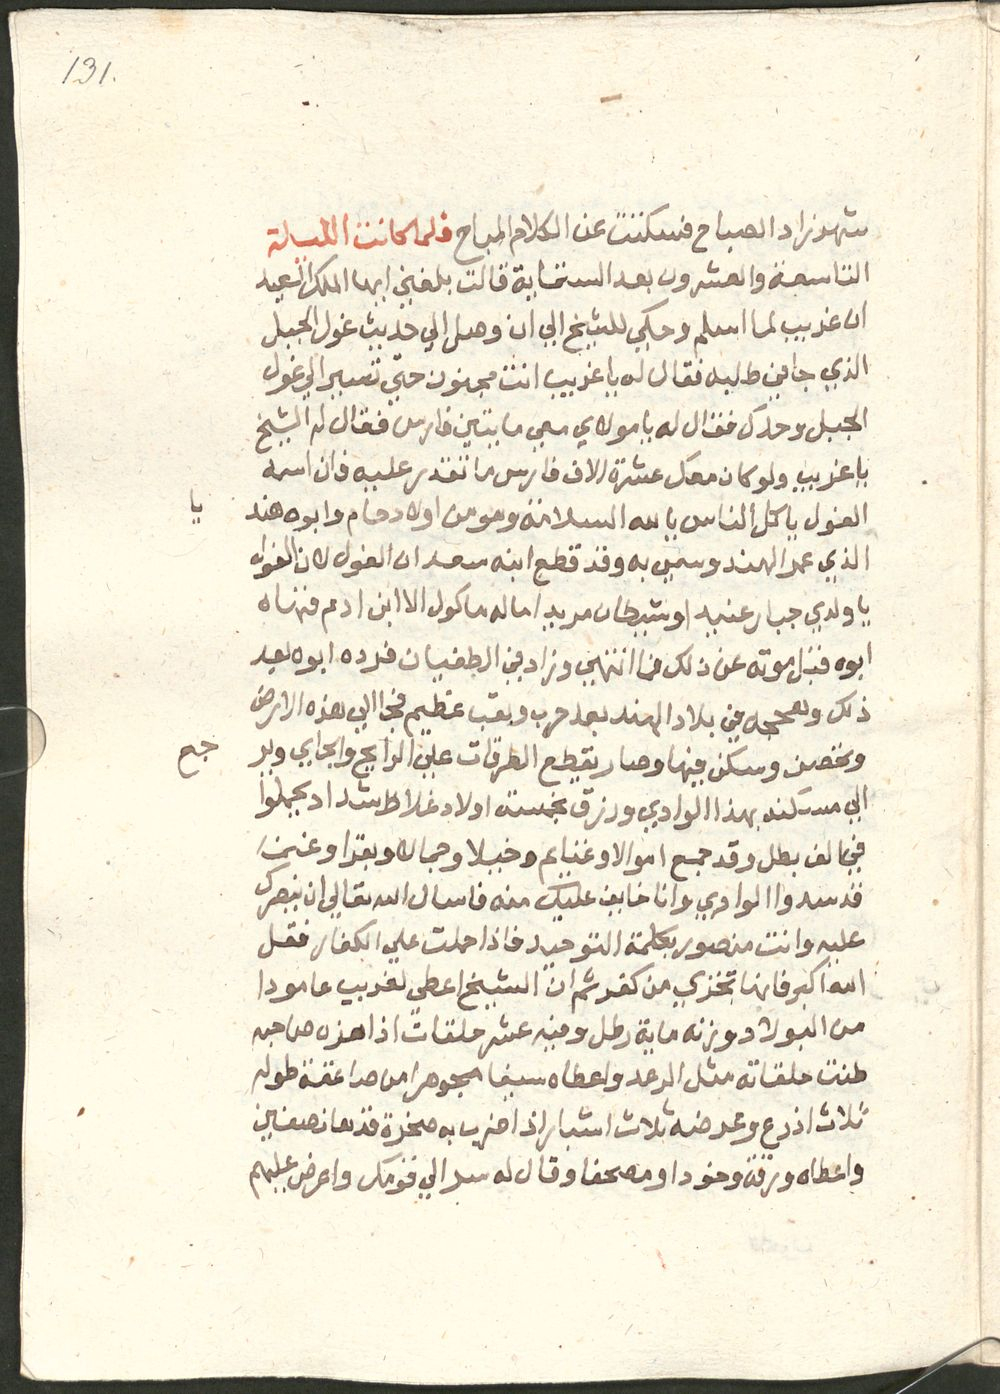 131.
شهرزاد الصباح فسكتت عن الكلام المباح فلما كانت الليلة
التاسعة والعشرون بعد الستماية قالت بلغني ايها الملك السعيد
ان غريب لما اسلم وحكي للشيخ الي ان وصل الي حديث غول الجبل
الذي جا في طلبه فقال له يا غريب انت مجنون حتي تسير الي غول
الجبل وحدك فقال له يا مولاي معي مايتين فارس فقال له الشيخ
يا غريب ولو كان معك عشرة الاف فارس ما تقدر عليه فان اسمه
الغول ياكل الناس يالله السلامة وهو من اولاد حام وابوه هند
يا
الذي عمر الهند وسمي به وقد قطع ابنه سعدان الغول لان الغول
يا ولدي جبار عنيد او شيطان مريد ما له ماكول الا ابن ادم فنهاه
ابوه قبل موته عن ذلك فما انتهي وزاد في الطغيان فرده ابوه بعد
ذلك و في بلاد الهند بعد حرب وتعب عظيم فجا الي هذه الارض
وتحصن وسكن فيها وصار يقطع الطرقات علي الرايح والجاي وير
جع
الي مسكنه بهذا الوادي ورزق بخمسة اولاد غلاظ شداد يحملوا
في الف بطل وقد جمع اموالا وغنايم وخيلا وجمالا وبقرا وغنما
قد سدوا الوادي وانا خايف عليك منه فاسال الله تعالي ان ينصرك
عليه وانت منصور بكلمة التوحيد فاذا حملت علي الكفار فقل
الله اكبر فانها تخزي من كفر ثم ان الشيخ اعطي لغريب عامودا
من البولاد وزنه ماية رطل وفيه عشر حلقات اذا هزه صاحبه
طنت حلقاته مثل الرعد واعطاه سيفا مجوهرا من صاعقة طوله
ثلاث اذرع وعرضه ثلاث اشبار اذا ضرب به صخرة قدها نصفين
واعطاه ودرقة وخودا ومصحفا وقال له سر الي قومك واعرض عليهم